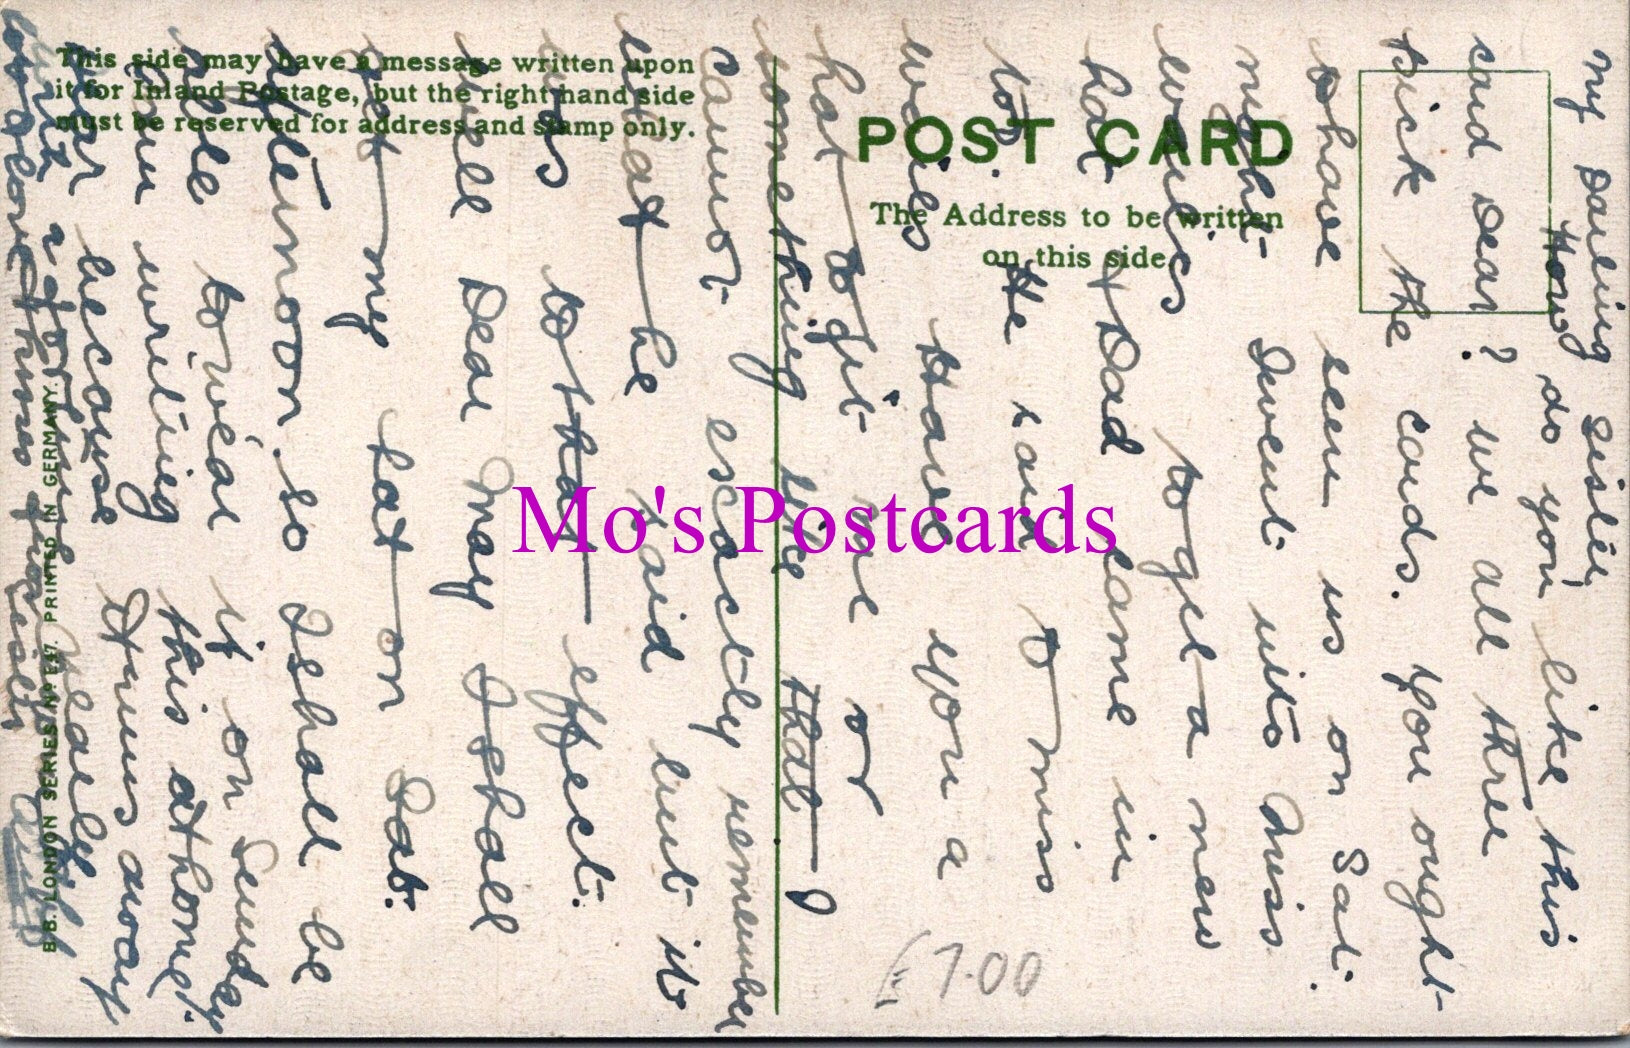 This side may have a message written upon
it for Inland Postage, but the right hand side
must be reserved for address and stamp only.
POST CARD
The Address to be written
on this side.
B.B. LONDON SERIES Nº E27. PRINTED IN GERMANY.
Mo's Postcards
£7.00
My Darling Sister
How do you like this
card Dear? we all three
pick the cards. You ought
to have seen us on Sat.
night. I went into Miss
to get a new
hat & Dad came in
too. He said to miss
Have you a
hat to fit me or
something like that I
cannot exactly remember
what he said but it
was to that effect.
well Dear May I shall
get my hat on Sat.
afternoon. so I shall be
able to wear it on Sunday
I am writing this at home
Dear because it was away